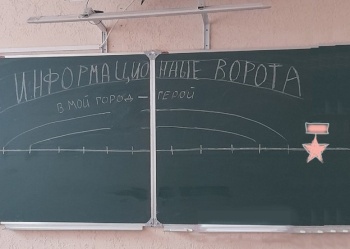 ИНФОРМАЦИОННЫЕ ВОРОТА
В МОЙ ГОРОД – ГЕРОЙ